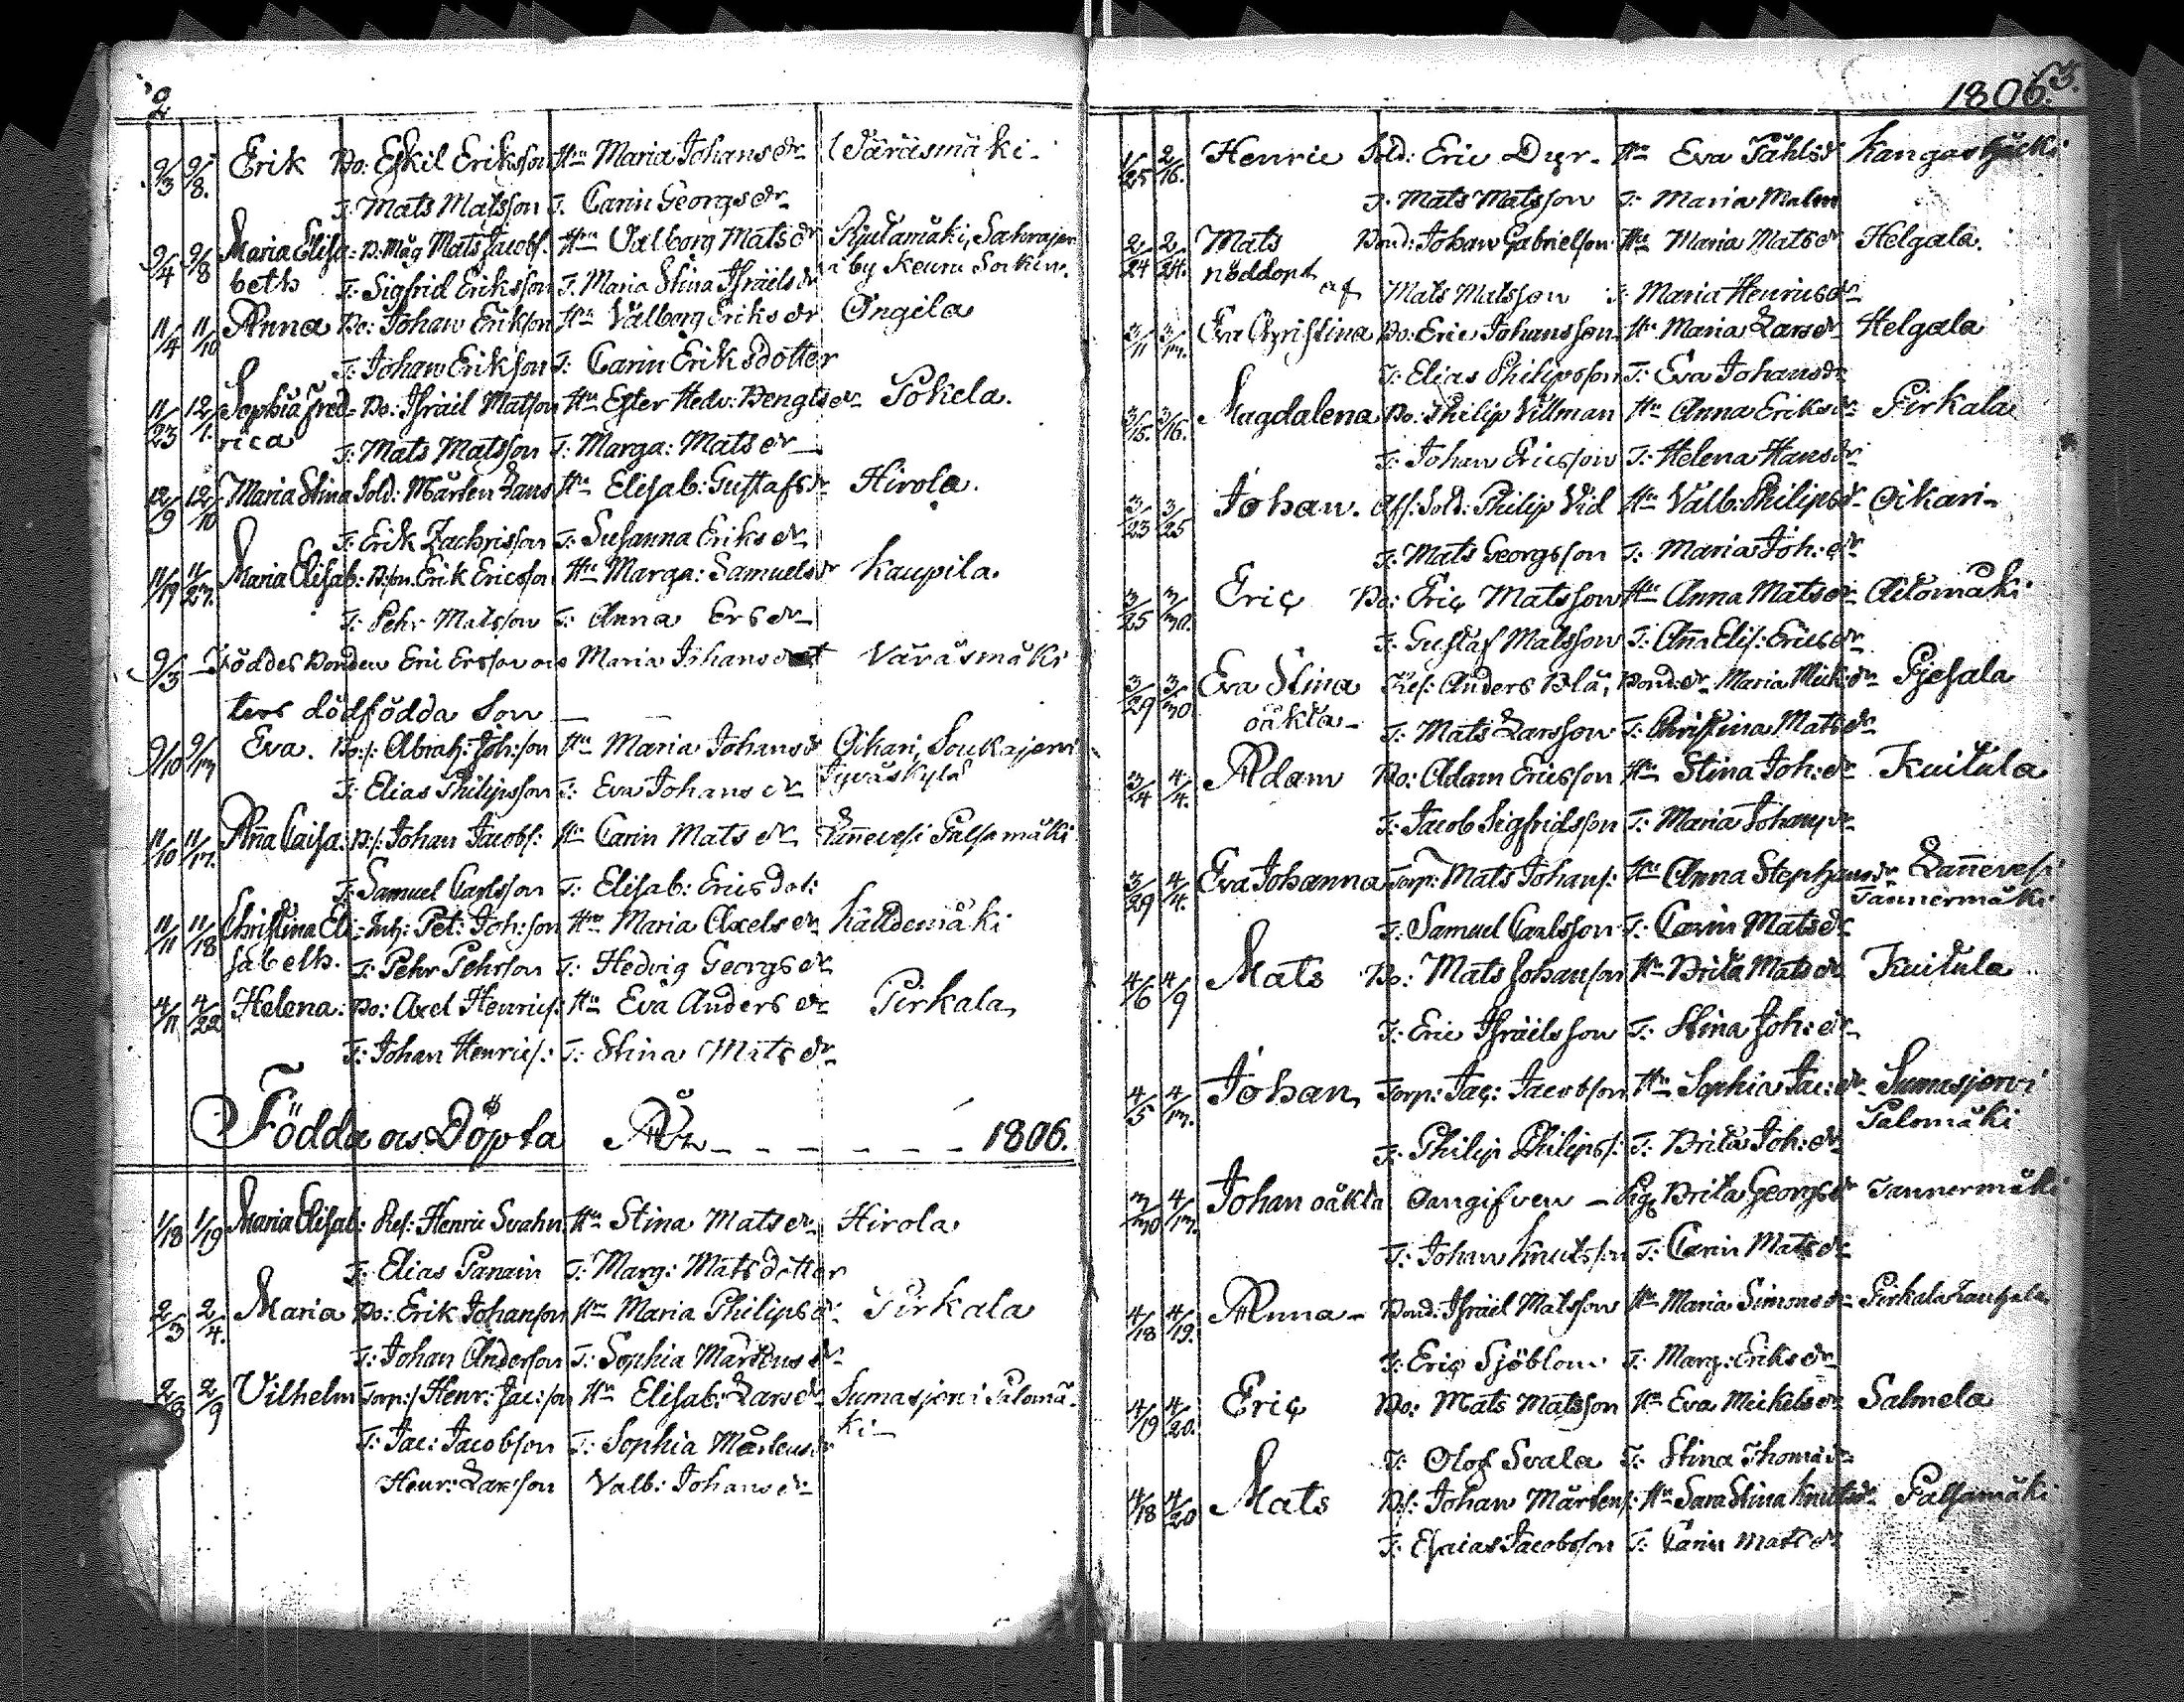 2
9/3 9/8. Erik Bo: Eskil Eriksson Hu Maria Johansdr Väräsmäki.
T: Mats Matsson T: Carin Georgsdr
9/4 9/8 Maria Elisa= B. Måg Mats Jacobs: Hu Valborg Matsdr
beth T: Sigfrid Eriksson T: Maria Stina Israëlsdr by Keuru Sockn.
11/4 11/10 Anna Bo: Johan Erikson Hu Valborg Eriksdr Ongila
T: Johan Erikson T: Carin Eriksdotter
11/23 12/1. Sophia Fred= Bo: Israil Matson Hu Ester Hedv: Bengtsdr Pohela.
rica T: Mats Matsson T: Marga: Matsdr
12/9 12/10 Maria Stina Sold: Mårten Hu Elisab: Gustafsdr Hirola.
T: Erik Zachrisson T: Susanna Eriksdr
11/19 11/27. Maria Elisab: B:son Erik Ericsson Hu Marga: Samuelsdr Kaupila.
T: Pehr Matsson T: Anna Ersdr
9/3 Föddes Bonden Eric Ersson ocs Maria Johansdot Väräsmäki
ters dödfödda Son
9/10 9/17 Eva. Bo:s: Abrah: Joh:son Hu Maria Johansdr Oikari, Soukajervi
T: Elias Philipsson T: Eva Johansdr Jyväskylä
11/10 11/17. Anna Caisa. B:s: Johan Jacobs: Hu Carin Matsdr Lannevesi Palsamäki
T: Samuel Carlsson T: Elisab: Ericsdot:
11/11 11/18 Christina Eli= Inh: Pet: Joh:son Hu Maria Axelsdr Källdemäki
sabeth. T: Pehr Pehrson T: Hedvig Georgsdr
4/11 4/22 Helena: Bo: Axel Henrics: Hu Eva Andersdr Pirkala
T: Johan Henrics: T: Stina Matsdr
Födda ocs Döpta År 1806.
1/18 1/19 Maria Elisab: Ref: Henric Svahn Hu Stina Matsdr Hirola
T: Elias Panain T: Marg: Matsdotter
2/3 2/4. Maria Bo: Erik Johanson Hu Maria Philipsdr Pirkala
T: Johan Anderson T: Sophia Mårtensdr
2/8 2/9 Vilhelm Torp: Henr: Jac:son Hu Elisab: Larsdr Sumasjervi Palomä-
T: Jac: Jacobson T: Sophia Mårtensdr ki
Henr: Larsson Valb: Johansdr
1806. 3.
1/25 2/16. Henric Sold: Eric Dyr Hu Eva Påhlsdr
T: Mats Matsson T: Maria Malm
2/24 2/24. Mats Bond: Johan Gabrielson Hu Maria Matsdr Helgala.
nöddopt af Mats Matsson T: Maria Henricsdr
3/11 3/17. Eva Christina Bo: Eric Johansson Hu Maria Larsdr Helgala
T: Elias Philipsson T: Eva Johansdr
3/15. 3/16. Magdalena Bo: Philip Villman Hu Anna Eriksdr Pirkala
T: Johan Ericsson T: Helena Hansdr
3/23 3/25 Johan. Aff: Sold: Philip Vid Hu Valb: Philipsdr Oikari
T: Mats Georgsson T: Maria Joh:dr
3/25 3/30. Eric Bo: Eric Matsson Hu Anna Matsdr Aitomäki
T: Gustaf Matsson T: Anna Elis: Ericsdr
3/29 3/30 Eva Stina Ref: Anders Blå, Bond:dr Maria Mick:dr Pjesala
oäkta T: Mats Larsson T: Christina Matsdr
3/24 4/4. Adam Bo: Adam Ericsson Hu Stina Joh:dr Kuitula
T: Jacob Sigfridsson T: Maria Johansdr
3/29 4/4. Eva Johanna Torp: Mats Johans: Hu Anna Stephansdr Lannevesi
Tannermäki
T: Samuel Carlsson T: Carin Matsdr
4/6 4/9 Mats Bo: Mats Johanson Hu Brita Matsdr Kuitula
T: Eric Israëlsson T: Stina Joh:dr
4/5 4/17. Johan Torp: Jac: Jacobson Hu Sophia Jac:dr Sumasjervi
Palomäki
T: Philip Philips: T: Brita Joh:dr
3/30 4/17. Johan oäkta Oangifven Pig Brita Georgsdr Tannermäki
T: Johan Knutsson T: Carin Matsdr
4/18 4/19. Anna Bond: Israël Matsson Hu Maria Simonsdr Pirkala
T: Eric Sjöblom T: Marg: Eriksdr
4/19 4/20. Eric Bo: Mats Matsson Hu Eva Mickelsdr Salmela
T: Olof Svala T: Stina Thomasdr
4/18 4/20 Mats B:s: Johan Mårtens: Hu Sara Stina Knutsdr Palsamäki
T: Esaias Jacobsson T: Carin Matsdr